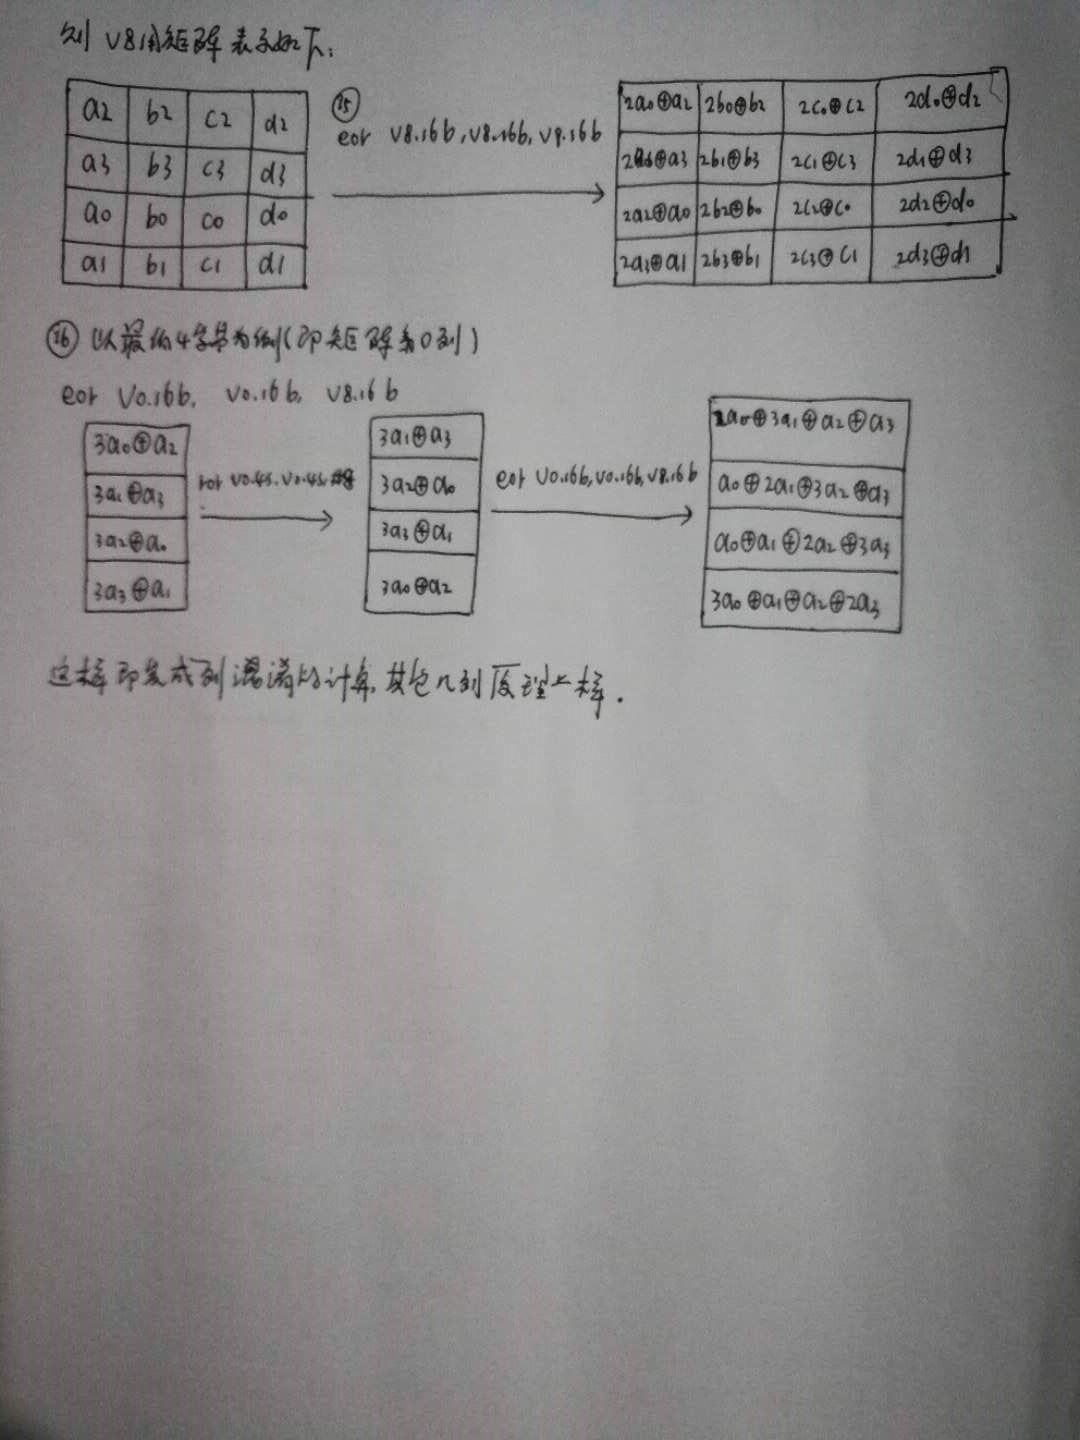 则 V8用矩阵表示如下:
a2 b2 c2 d2
a3 b3 c3 d3
a0 b0 c0 d0
a1 b1 c1 d1
⑮
eor V8.16b,V8.16b,V9.16b
2a0⊕a2 2b0⊕b2 2c0⊕c2 2d0⊕d2
2a1⊕a3 2b1⊕b3 2c1⊕c3 2d1⊕d3
2a2⊕a0 2b2⊕b0 2c2⊕c0 2d2⊕d0
2a3⊕a1 2b3⊕b1 2c3⊕c1 2d3⊕d1
⑯ 以最低4字节为例(即矩阵第0列)
eor V0.16b, V0.16b, V8.16b
3a0⊕a2
3a1⊕a3
3a2⊕a0
3a3⊕a1
ror V0.4s.V0.4s,#8
3a1⊕a3
3a2⊕a0
3a3⊕a1
3a0⊕a2
eor V0.16b,V0.16b,V8.16b
2a0⊕3a1⊕a2⊕a3
a0⊕2a1⊕3a2⊕a3
a0⊕a1⊕2a2⊕3a3
3a0⊕a1⊕a2⊕2a3
这样即完成列混淆的计算,其它几列原理一样.